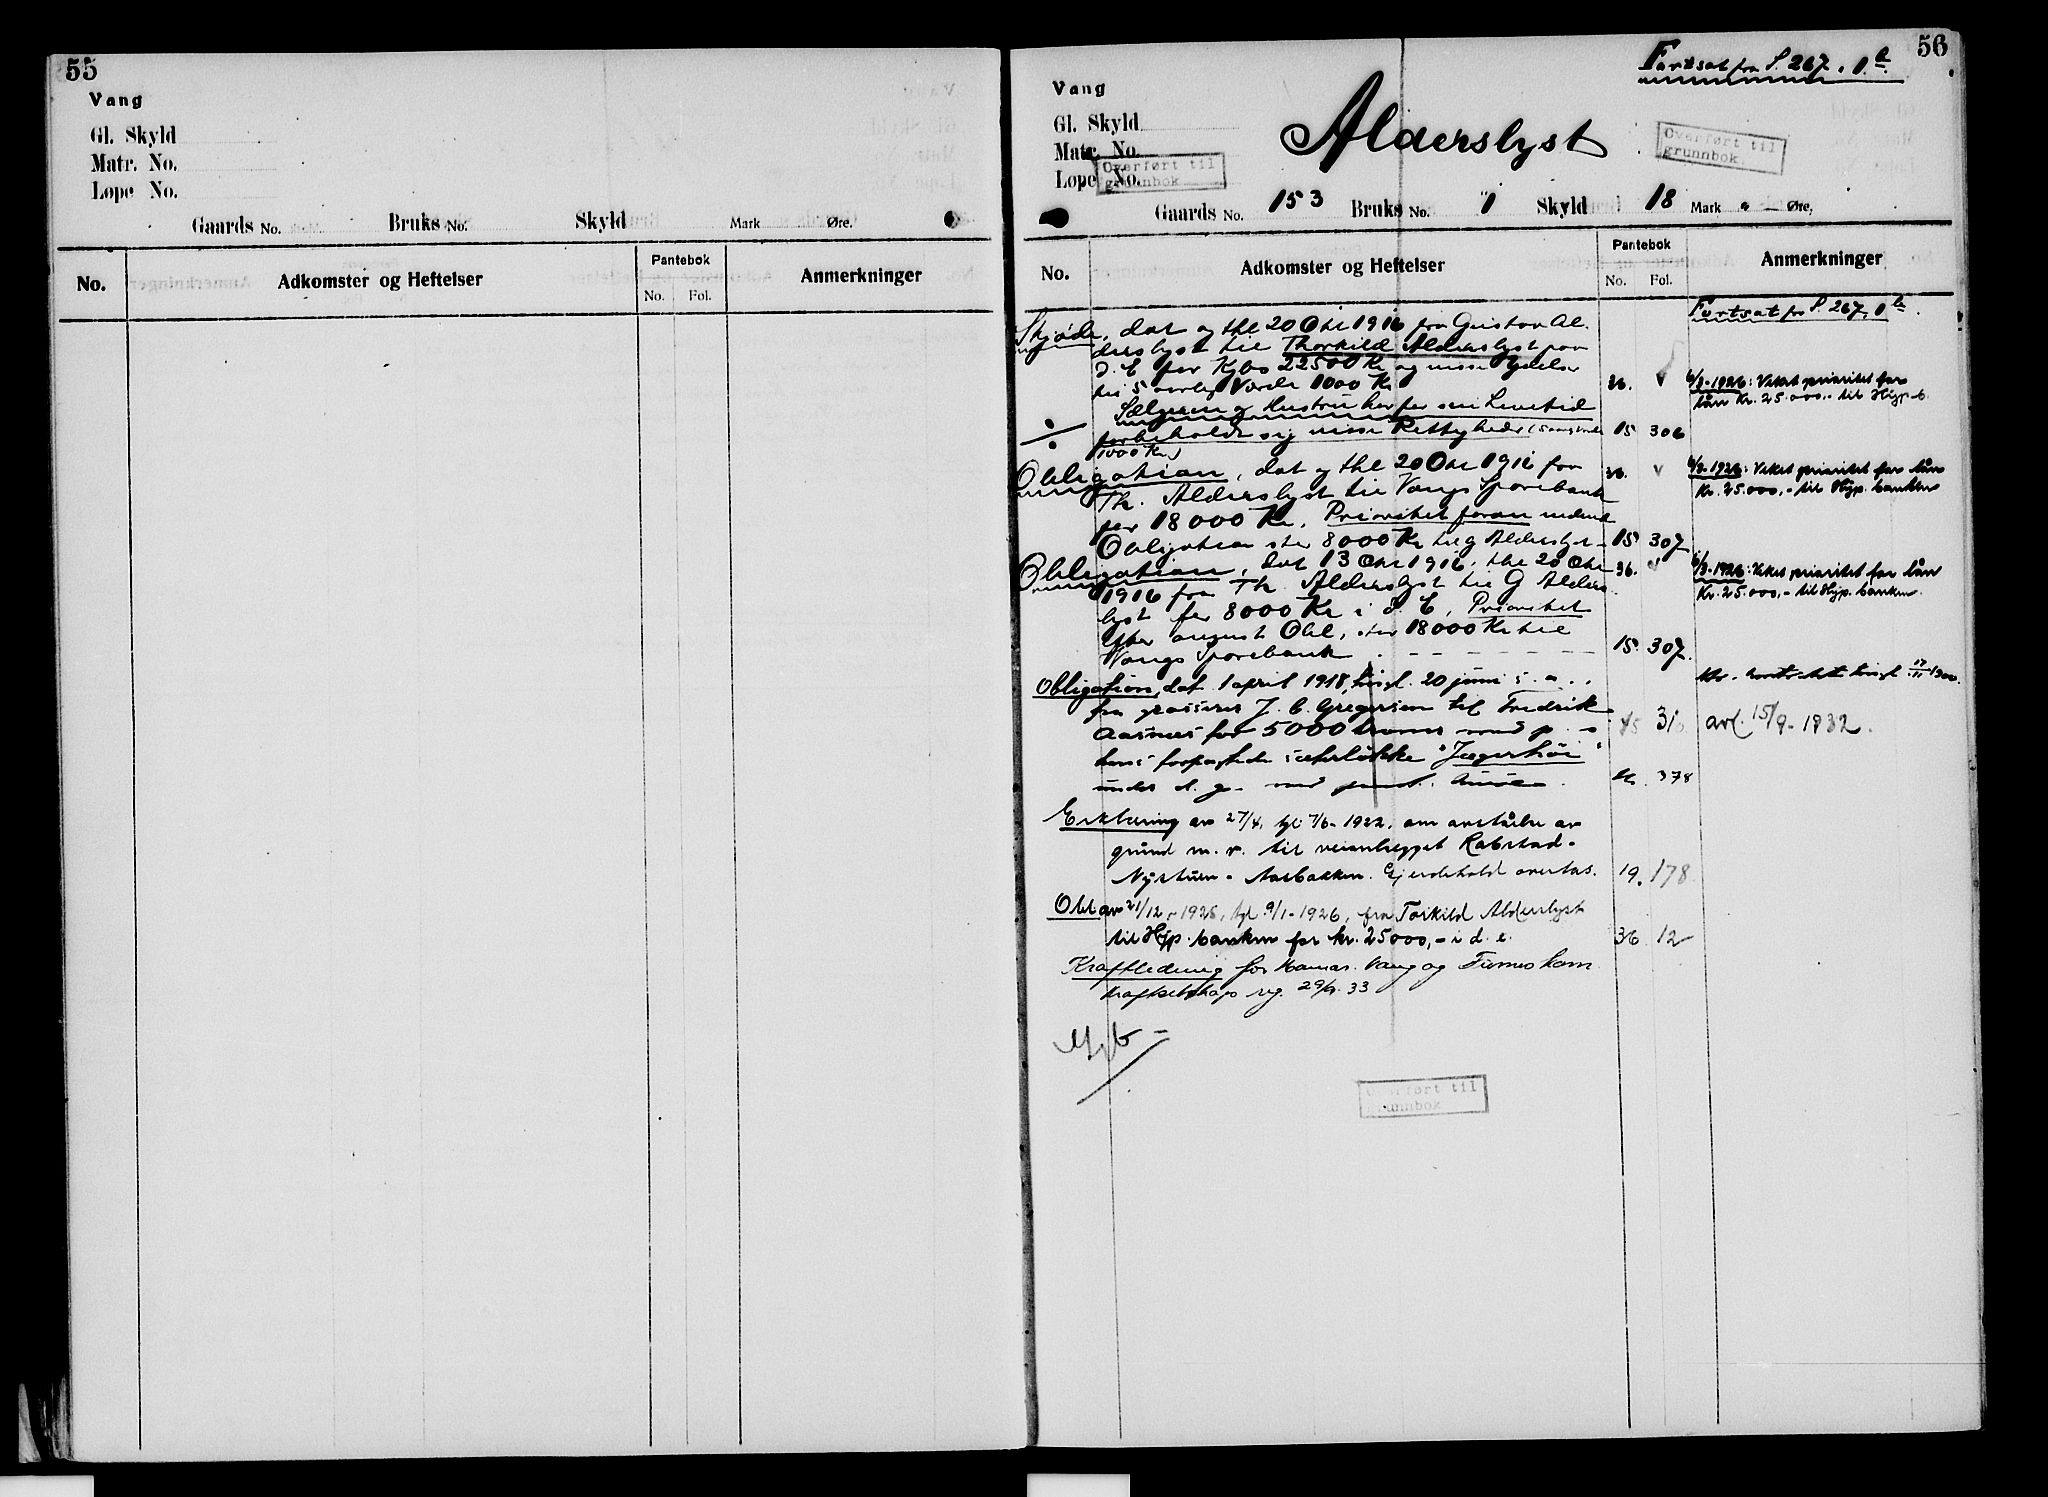 55
Vang
Gl. Skyld
Matr. No.
Løpe No.
Gaards No. Bruks No. Skyld Mark Øre.
No. Adkomster og Heftelser Pantebok Anmerkninger
No. Fol.
56
Fortsat fra S. 267, 1b
Vang
Gl. Skyld
Matr. No.
Løpe No.
Overført til
grunnbok
Alderslyst
Overført til
grunnbok.
Gaards No. 153 Bruks No. 1 Skyld 18 Mark - Øre,
No. Adkomster og Heftelser Pantebok Anmerkninger
No. Fol.
Fortsat fra S. 267, 1b
Skjøde, dat og thl 20 Okt 1916 fra Gustav Al-
derslyst til Thorkild Alderslyst paa
d. E for Kjbs 22500 Kr og visse Ydelser
til 5 aarlig Værdi 1000 Kr 36. 6/3-1926: Veket prioritet for
lån Kr. 25.000,- til Hyp. b.
Sælgeren og Hustru har for sin Levetid
forbeholdt sig visse Rettigheder 15 306
1000 Kr.)
Obligation, dat og thl 20 Okt 1916 fra 36. 6/3-1926: Veket prioritet for lån
Th. Alderslyst til Vangs Sparebank Kr. 25.000,- til Hyp. banken
for 18000 Kr. Prioritet foran
Obligation stor 8000 Kr til G Alderslyst - 15 307
Obligation, dat 13 Okt 1916, thl 20 Okt 36. 6/3-1926: Veket prioritet for lån
1916 fra Th. Alderslyst til G Alders- Kr. 25.000,- til Hyp. banken.
lyst for 8000 Kr i d. E, Prioritet
efter Obl, stor 18000 Kr til
Vangs Sparebank - - - - - 15. 307.
Obligation, dat 1 april 1918, tingl. 20 juni s. a.
fra J. C. Gregersen til Fredrik
Aasnes for 5000 kroner med p
hans sæterløkke "Jægerhøi" 15 31 avl. 15/9-1932.
under d. g. med 378
Erklæring av 27/4, tgl 7/6-1922, om avståelse av
grund m. v. til veianlegget Rabstad-
Nystuen - Aasbakken. Gjerdehold overtas. 19. 178.
Obl av 21/12-1925, tgl 9/1-1926, fra Torkild Alderslyst
til Hyp. banken for kr. 25000,- i d. e. 36 12
Kraftledning for Hamar, Vang og Furnes kom.
kraftselskap reg. 33
Overført til
grunnbok